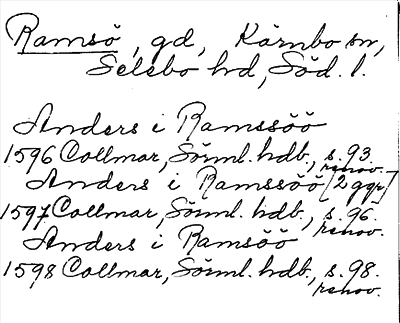 Ramsö, gd, Kärnbo sn,
Selebo hd, Söd. l.
Anders i Ramssöö
1596 Collmar, Sörml. hdb., s. 93.
renov.
Anders i Ramssöö [2 ggr]
1597 Collmar, Sörml. hdb., s. 96.
renov.
Anders i Ramsöö
1598 Collmar, Sörml. hdb., s. 98.
renov.